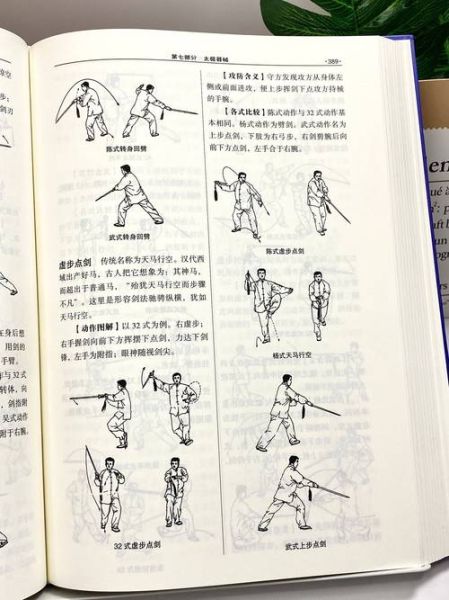 第七部分 太极器械
·389·
陈式转身回劈
武式转身回劈
虚步点剑 传统名称为天马行空。汉代西
域出产好马，古人把它想象为：其神马，
而超出于普通马，“殆犹天马行空而步骤
不凡”。这里是形容剑法驰骋纵横，犹如
天马行空。
【动作图解】以 32 式为例，右虚步；
右手握剑向前下方挥摆下点剑，力达下剑
锋，左手为附指；眼神随视剑尖。
32 式虚步点剑
【攻防含义】守方发现攻方从身体左
侧或前面进攻，便上步挥剑下点攻方持械
的手腕。
【各式比较】陈式动作与 32 式动作基
本相同。杨式动作为劈剑。武式动作名为
上步点剑，下肢为右弓步，右剑剪腕后向
前下方点剑，左手合于右腕。
陈式虚步点剑
杨式天马行空
武式上步点剑
在身后想
用剑的
手臂。
作与 32 式
转体，向
，剑指附
吴式动作
附于右腕。